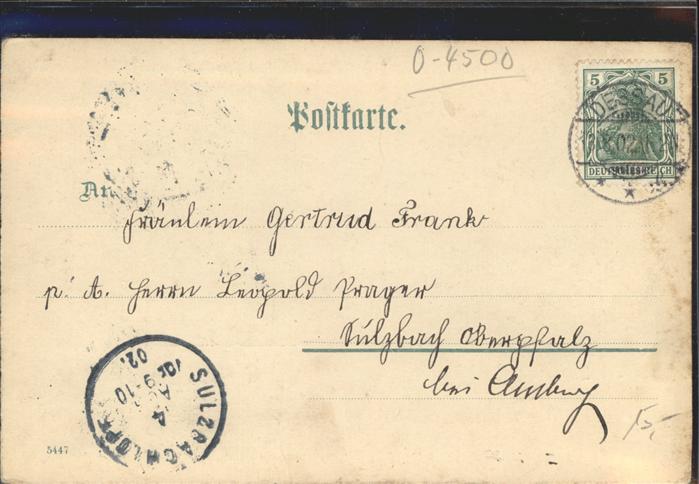 O-4500
Postkarte.
5 5
DESSAU
DEUTSCHES REICH
An
Fräulein Gertrud Frank
p. A. Herrn Leopold Prager
Sulzbach Oberpfalz
bei Amberg
SULZBACH
4
9-10
02.
15,-
5447